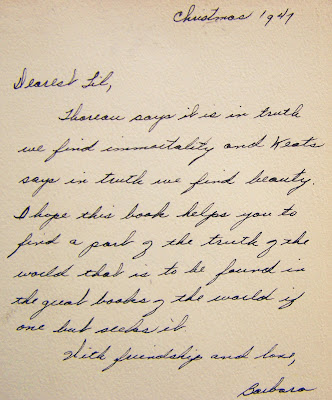 Christmas 1947
Dearest Lil,
Thoreau says it is in truth
we find immortality and Keats
says in truth we find beauty.
I hope this book helps you to
find a part of the truth of the
world that is to be found in
the great books of the world if
one but seeks it.
With friendship and love,
Barbara